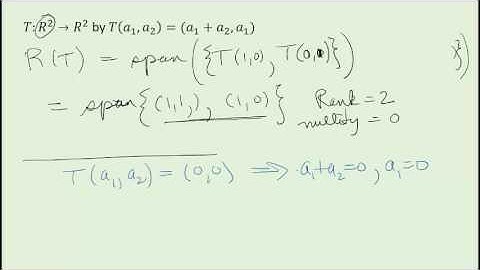 T: R² → R² by T(a₁, a₂) = (a₁ + a₂, a₁)
R(T) = span({T(1,0), T(0,1)}) })
= span{(1,1,), (1,0)} Rank = 2
nullity = 0
T(a₁, a₂) = (0,0) ⟹ a₁+a₂=0, a₁=0